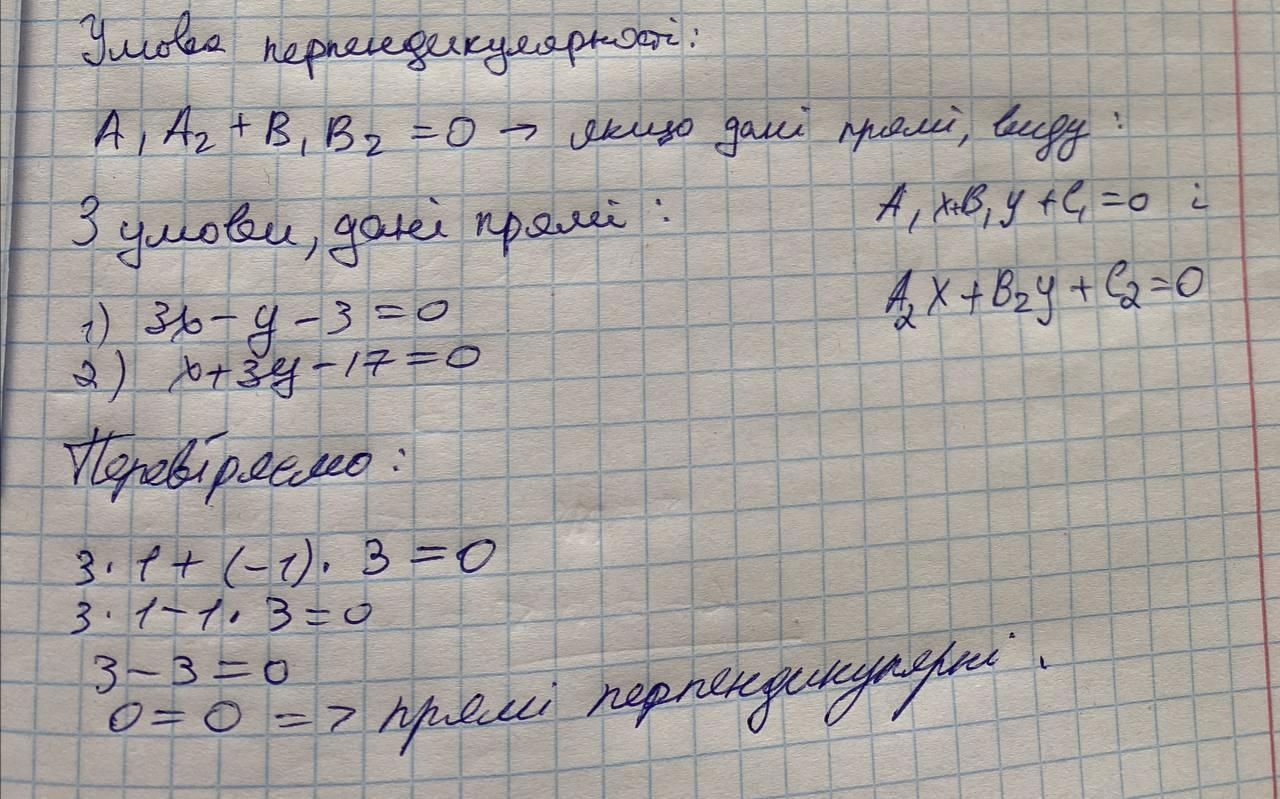 Умова перпендикулярності:
A₁A₂ + B₁B₂ = 0 → якщо дані прямі, виду:
A₁x+B₁y+C₁=0 і
A₂x+B₂y+C₂=0
З умови, дані прямі:
1) 3x-y-3=0
2) x+3y-17=0
Перевіряємо:
3·1+(-1)·3=0
3·1-1·3=0
3-3=0
0=0 => прямі перпендикулярні.